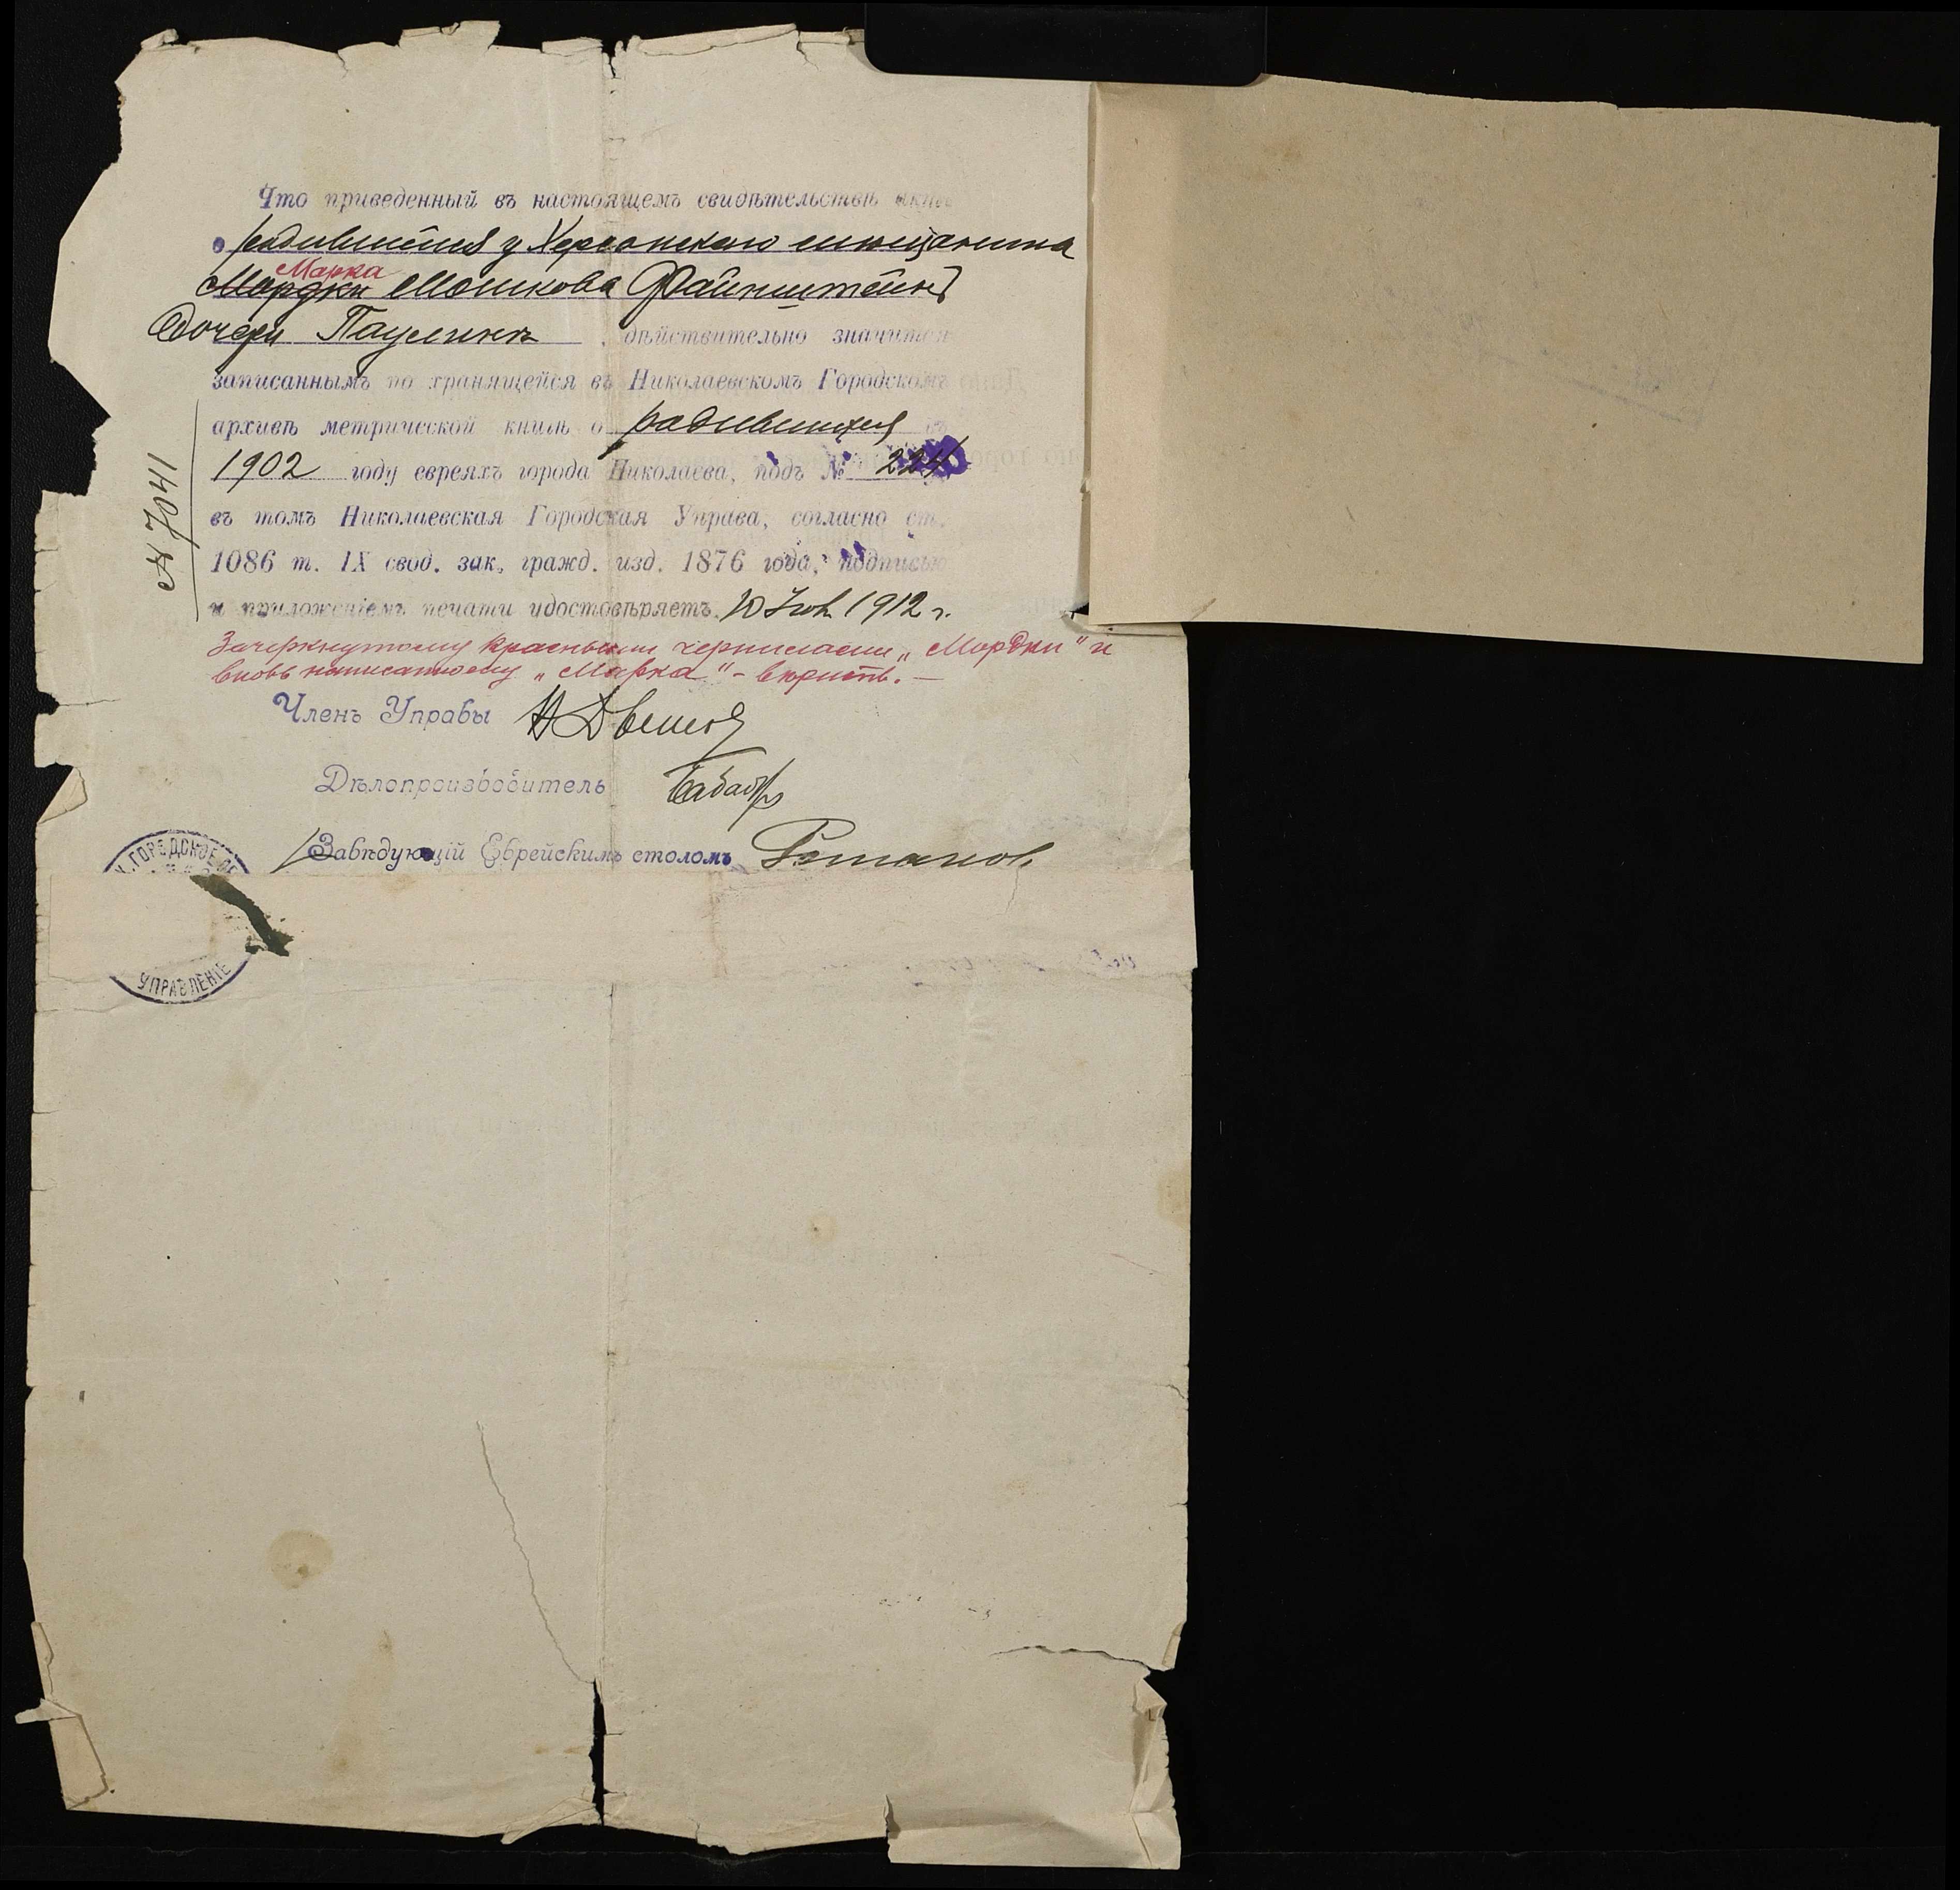 Что приведенный въ настоящемъ свидѣтельствѣ актъ
о родившейся у Херсонскаго мѣщанина
Марка
Мордки Мошкова Файнштейнъ
дочери Паулинѣ, дѣйствительно значится
записаннымъ по хранящейся въ Николаевскомъ Городскомъ
архивѣ метрической книгѣ о родившихся въ
1902 году евреяхъ города Николаева, подъ № 224
въ томъ Николаевская Городская Управа, согласно ст.
1086 т. IX свод. зак. гражд. изд. 1876 года, подписью
и приложеніемъ печати удостовѣряетъ. 1912 г.
Зачеркнутому красными чернилами „Мордки" и
вновь написанному „Марка" - вѣрить. —
Членъ Управы
Дѣлопроизводитель
Завѣдующій Еврейскимъ столомъ
№ 7041
ГОРОДСКОЕ
УПРАВЛЕНІЕ